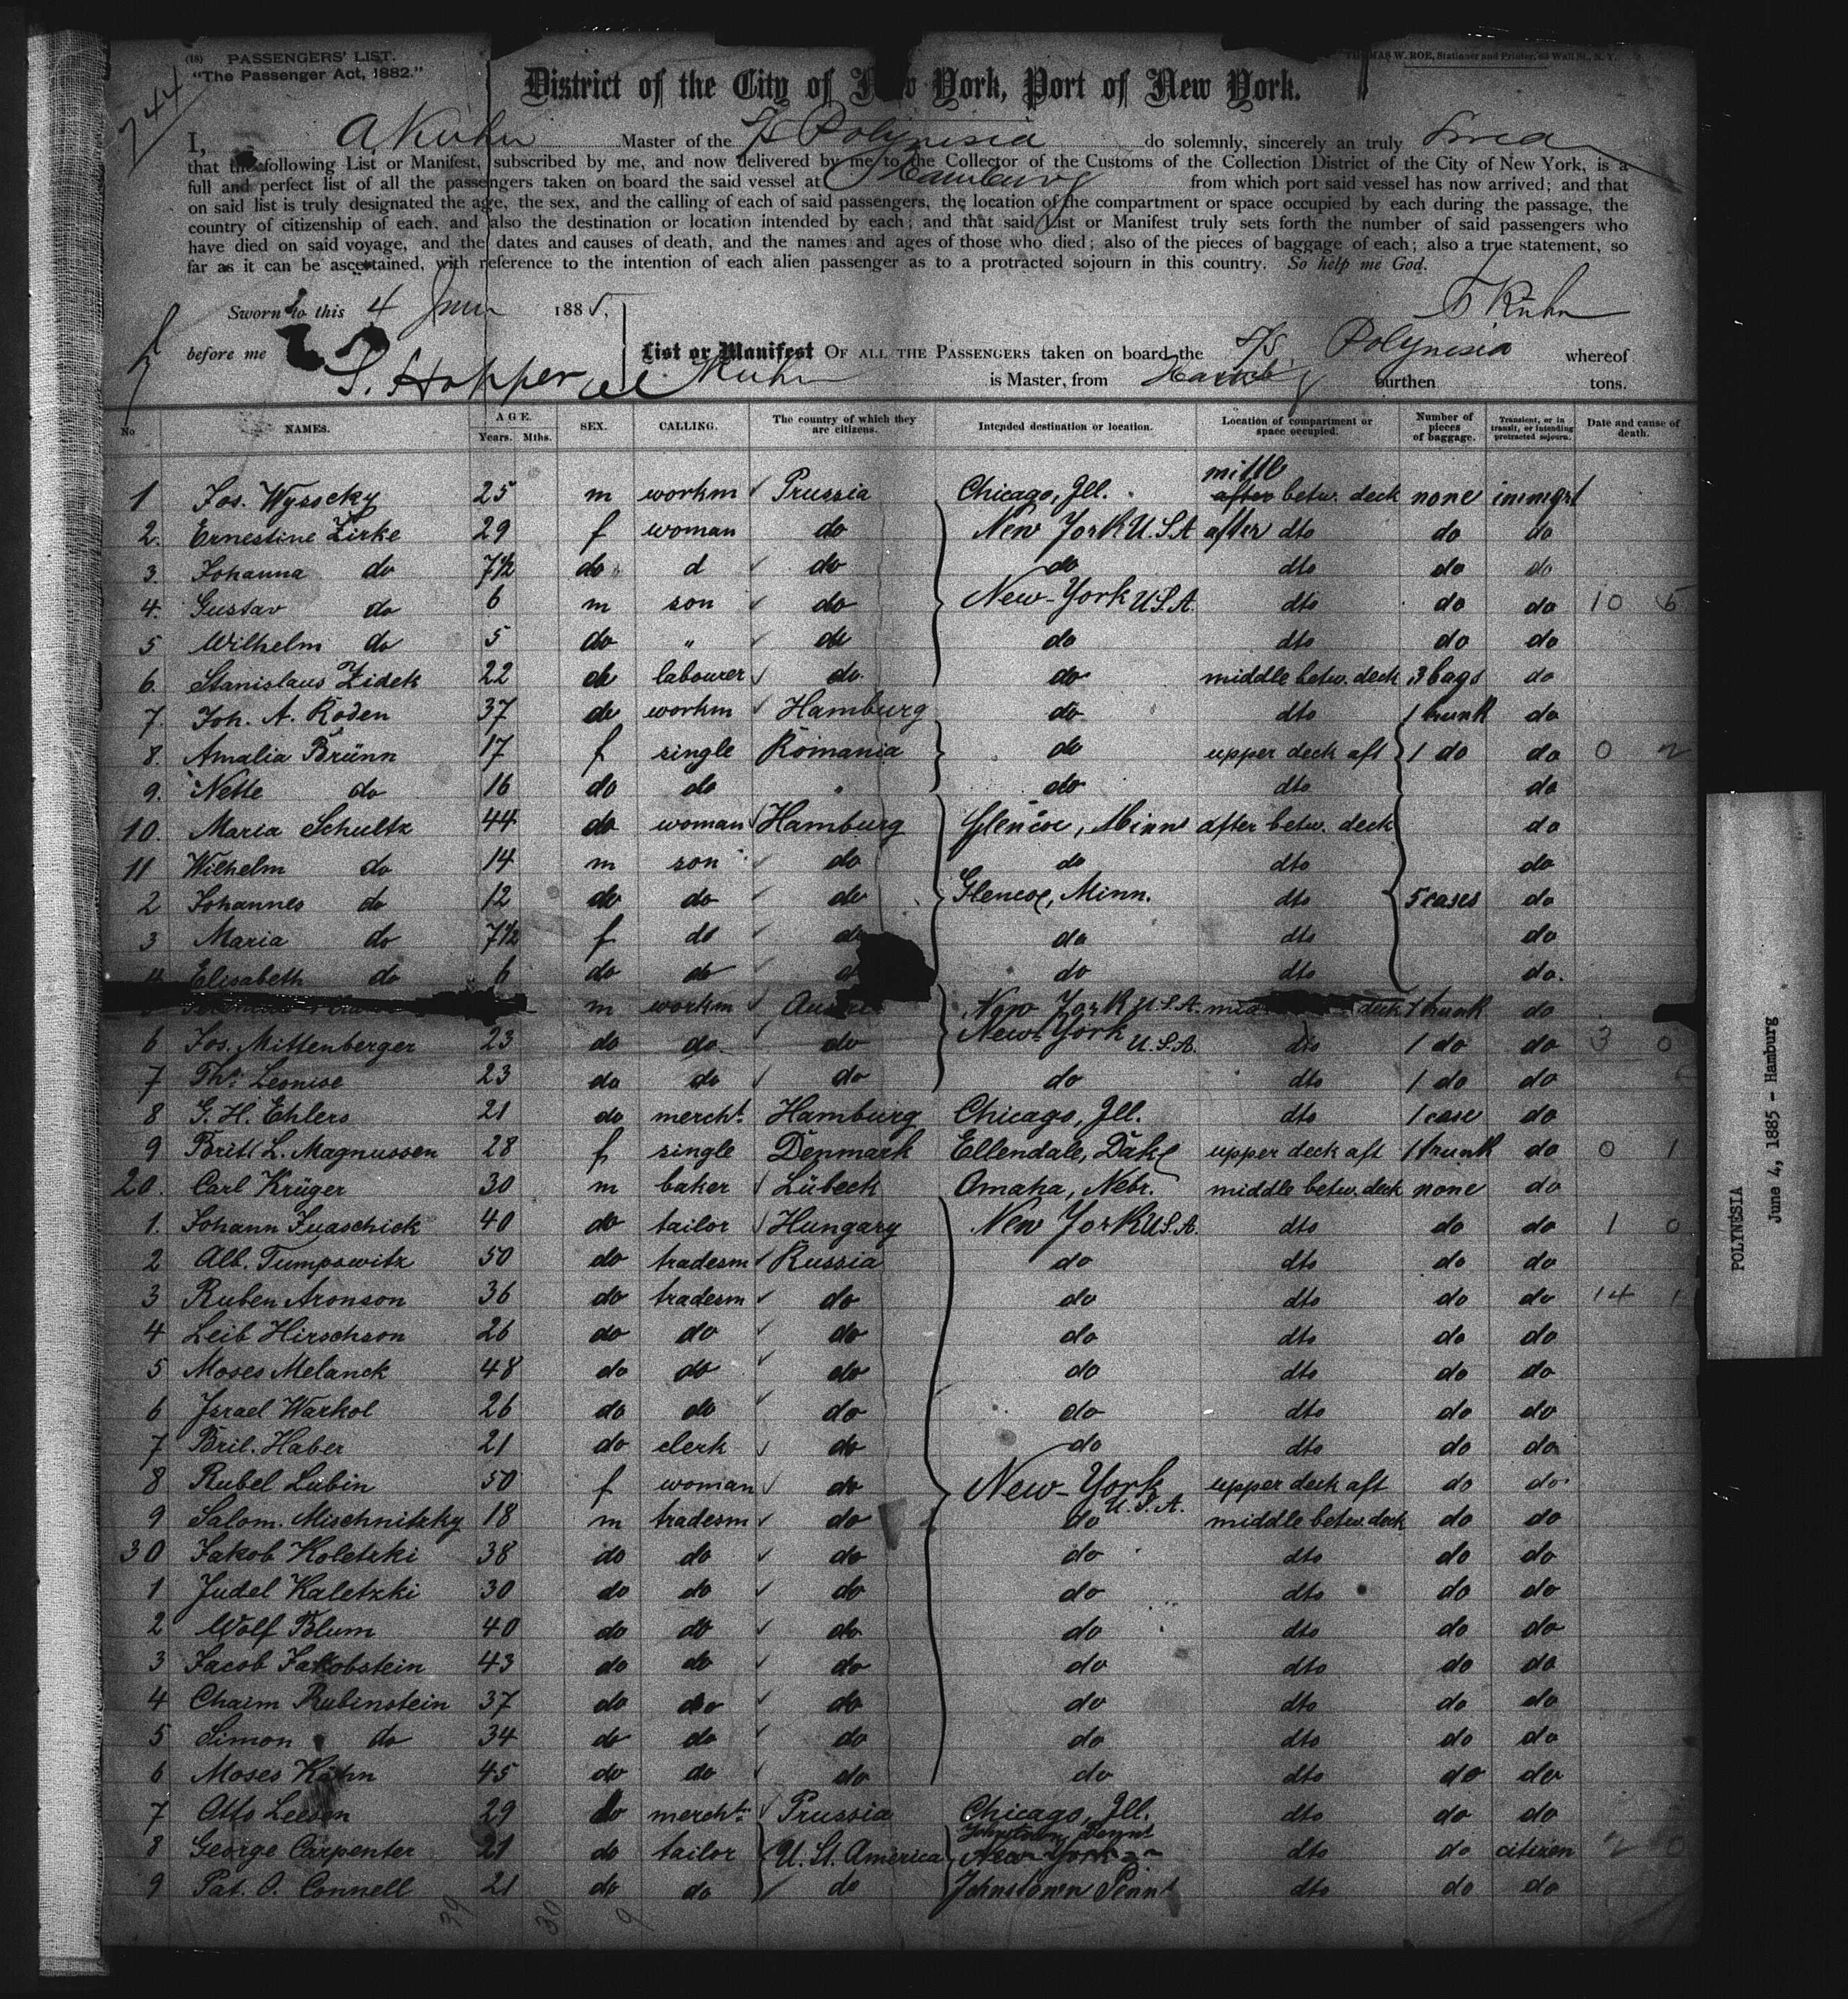 (18) PASSENGERS' LIST.
"The Passenger Act, 1882."
THOMAS W. ROE, Stationer and Printer, 63 Wall St., N. Y.
744
District of the City of New York, Port of New York.
I, A Kuhn Master of the S/S Polynesia do solemnly, sincerely an truly
that the following List or Manifest, subscribed by me, and now delivered by me to the Collector of the Customs of the Collection District of the City of New York, is a
full and perfect list of all the passengers taken on board the said vessel at Hamburg from which port said vessel has now arrived; and that
on said list is truly designated the age, the sex, and the calling of each of said passengers, the location of the compartment or space occupied by each during the passage, the
country of citizenship of each, and also the destination or location intended by each; and that said List or Manifest truly sets forth the number of said passengers who
have died on said voyage, and the dates and causes of death, and the names and ages of those who died; also of the pieces of baggage of each; also a true statement, so
far as it can be ascertained, with reference to the intention of each alien passenger as to a protracted sojourn in this country. So help me God.
Sworn to this 4 June 1885. Kuhn
before me S. Hopper
List or Manifest OF ALL THE PASSENGERS taken on board the S/S. Polynesia whereof
Kuhn is Master, from Hamburg burthen tons.
No NAMES. AGE. Years. Mths. SEX. CALLING. The country of which they are citizens. Intended destination or location. Location of compartment or space occupied. Number of pieces of baggage. Transient, or in transit, or intending protracted sojourn. Date and cause of death.
1 Jos. Wysscky 25 m workm Prussia Chicago, Ill. after middle betw. deck none immgrt
2. Ernestine Zirke 29 f woman do New York U.S.A. after dto do do
3. Johanna do 7½ do d do do dto do do
4. Gustav do 6 m son do New-York U.S.A. dto do do 10 5
5 Wilhelm do 5 do " do do dto do do
6. Stanislaus Zidek 22 do labourer do do middle betw. deck 3 bags do
7. Joh. A. Roden 37 do workm Hamburg do dto 1 trunk do
8. Amalia Brünn 17 f single Romania do upper deck aft 1 do do 0 2
9. Nette do 16 do do " do dto do
10. Maria Schultz 44 do woman Hamburg Glencoe, Minn after betw. deck do
11 Wilhelm do 14 m son do do dto do
2 Johannes do 12 do do do Glencoe, Minn. dto 5 cases do
3 Maria do 7½ f do do do dto do
4 Elisabeth do 6 do do do do dto do.
m workm New York U.S.A. deck 1 trunk do
6 Jos. Mittenberger 23 do do do New-York U.S.A. dto 1 do do 3 0
7 Th. Leonise 23 do do do do dto 1 do do
8 G. H. Ehlers 21 do mercht. Hamburg Chicago, Ill. dto 1 case do
9 Britl L. Magnussen 28 f single Denmark Ellendale, Dak upper deck aft 1 trunk do 0 1
20. Carl Krüger 30 m baker Lübeck Omaha, Nebr. middle betw. deck none do
1. Johann Juaschick 40 do tailor Hungary New York U.S.A. dto do do 1 0
2 Alb. Tumpowitz 50 do tradesm Russia do dto do do
3 Ruben Aronson 36 do tradesm do do dto do do 14 1
4 Leib Hirschson 26 do do do do dto do do
5 Moses Melanck 48 do do do do dto do do
6 Israel Warkol 26 do do do do dto do do
7 Bril. Haber 21 do clerk do do dto do do
8 Rubel Lubin 50 f woman do New-York U.S.A. upper deck aft do do
9 Salom. Mischnitzky 18 m tradesm do do middle betw. deck do do
30 Jakob Koletzki 38 do do do do dto do do
1 Judel Kaletzki 30 do do do do dto do do
2 Wolf Blum 40 do do do do dto do do
3 Jacob Jakobstein 43 do do do do dto do do
4 Chaim Rubinstein 37 do do do do dto do do
5 Simon do 34 do do do do dto do do
6 Moses Kahn 45 do do do do dto do do
7 Otto Leesen 29 do mercht. Prussia Chicago, Ill. dto do do
8 George Carpenter 21 do tailor U. St. America New-York Johnstown, Penns dto do citizen 2 0
9 Pat. O. Connell 21 do do do Johnstown Penns dto do do
39 30 9
POLYNESIA
June 4, 1885 - Hamburg